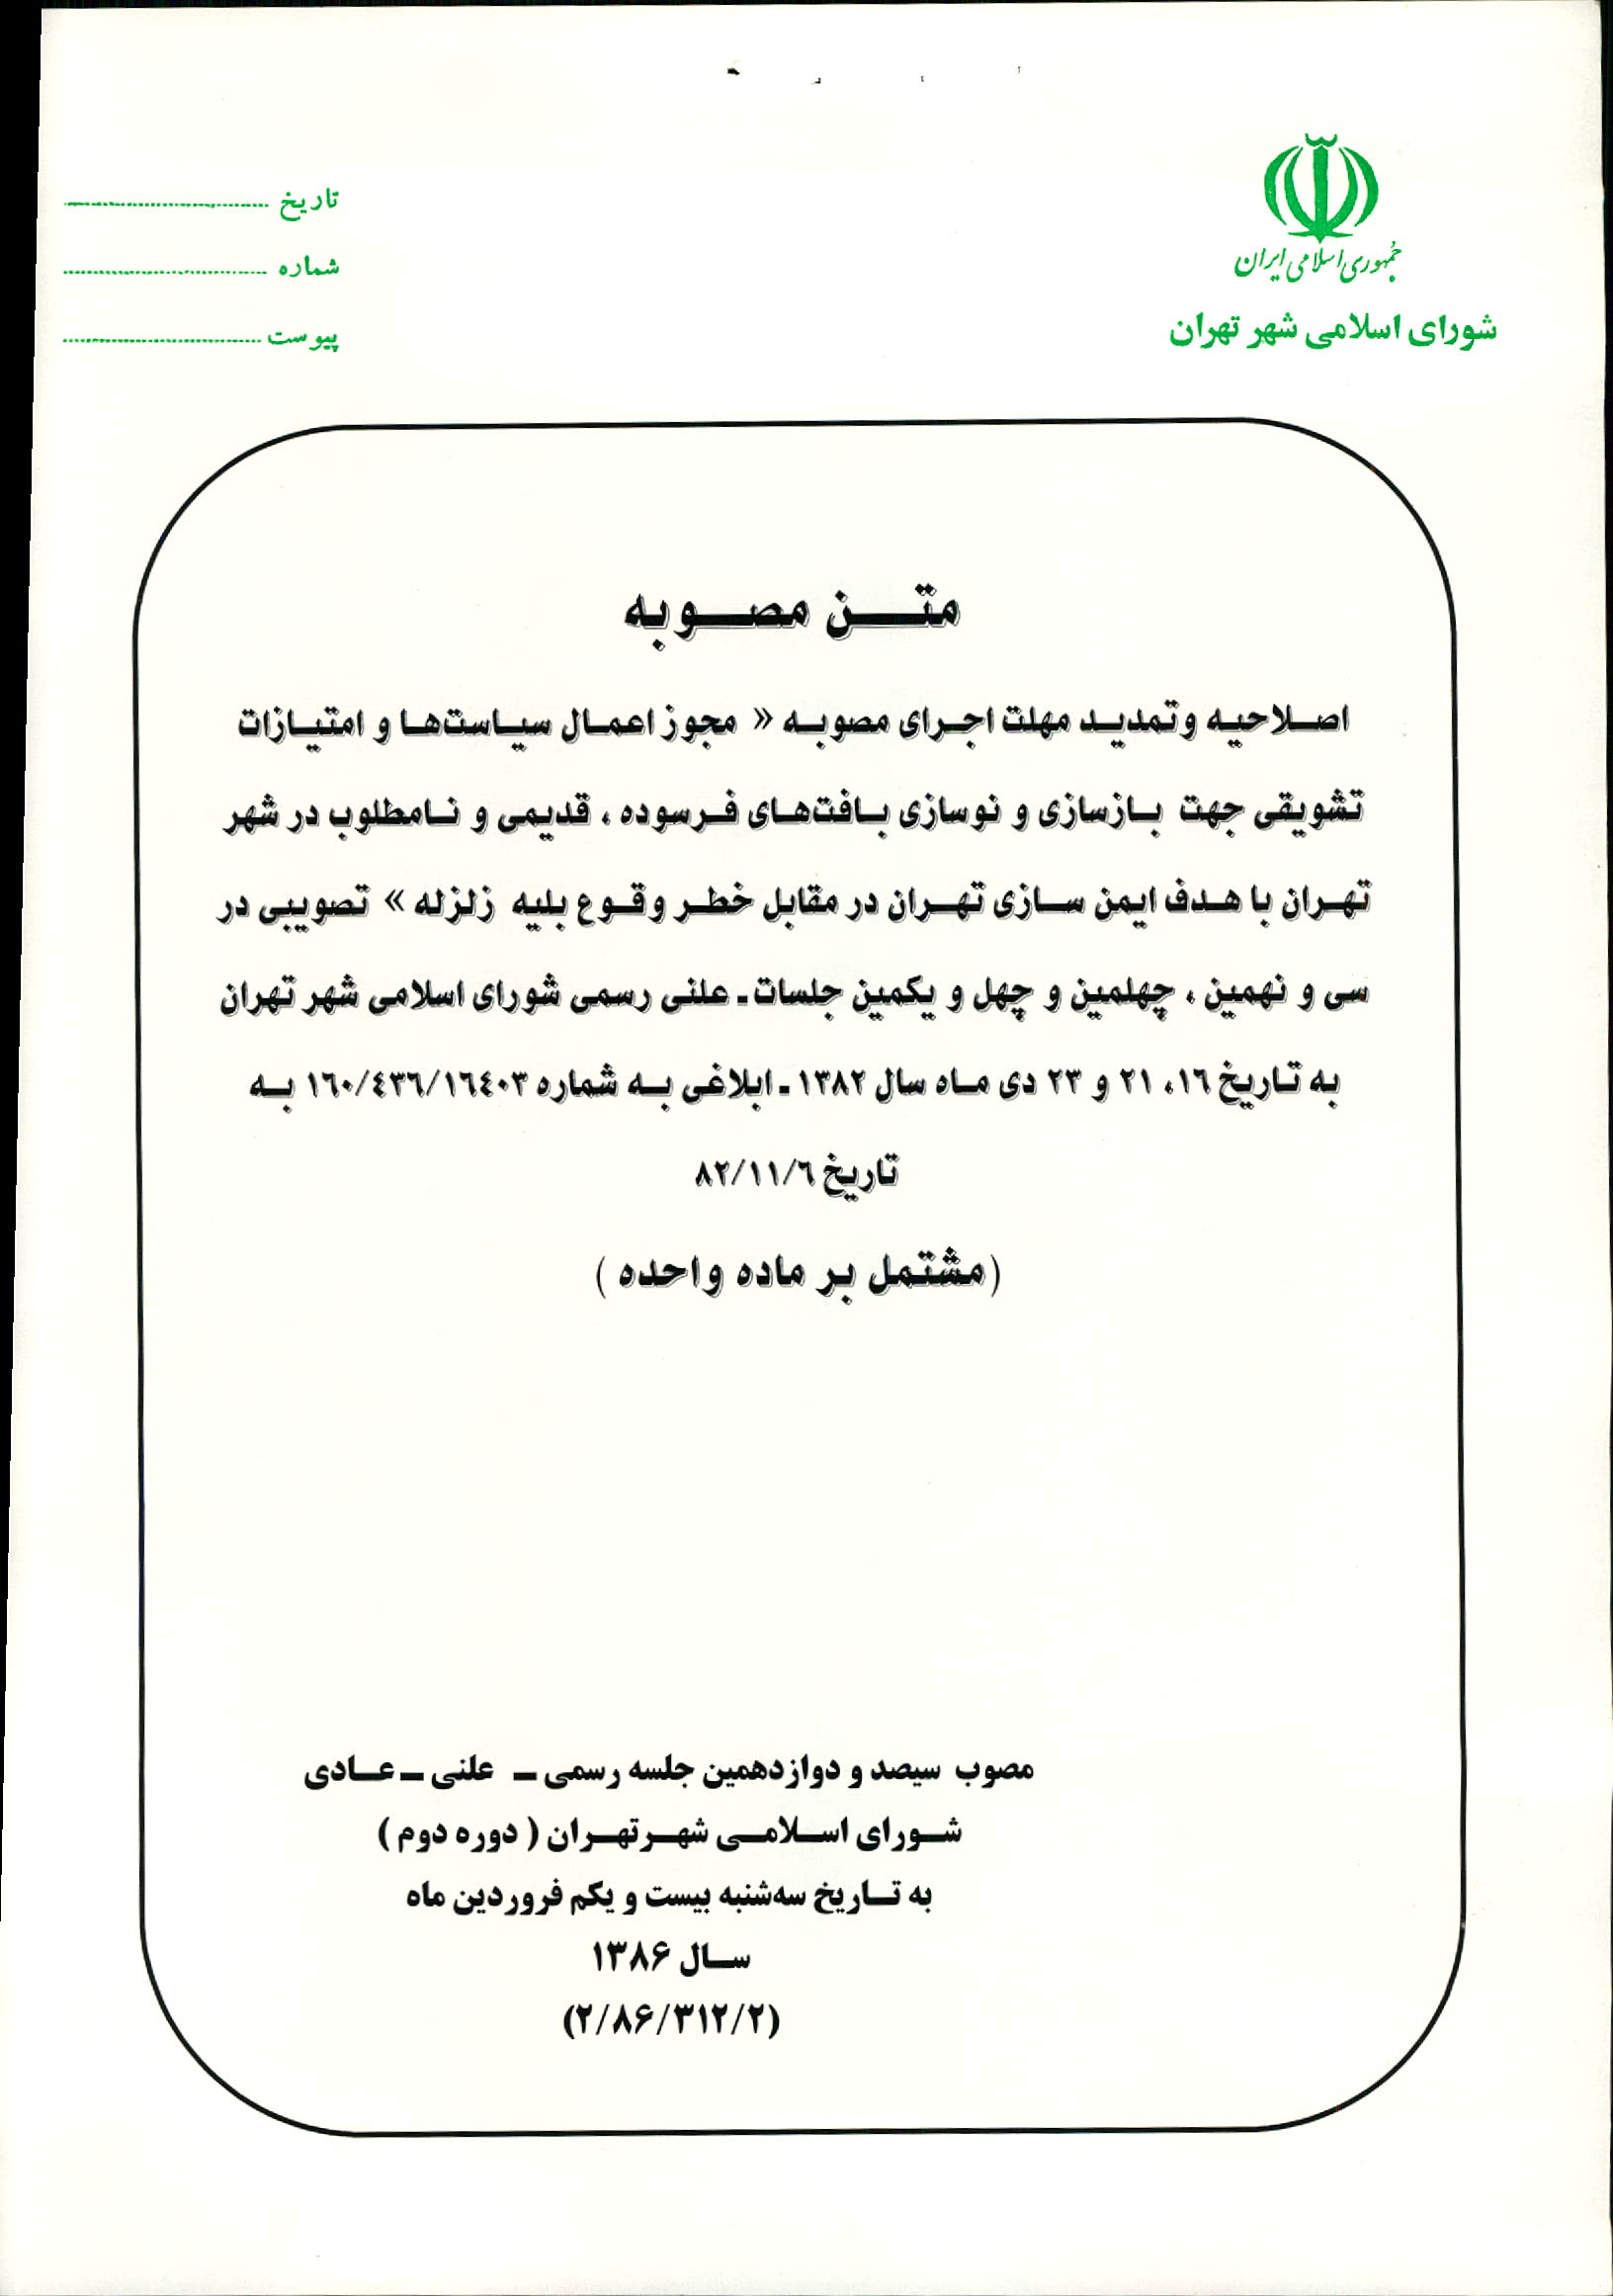 جمهوری اسلامی ایران
شورای اسلامی شهر تهران
تاریخ
شماره
پیوست
متن مصوبه
اصلاحیه و تمدید مهلت اجرای مصوبه « مجوز اعمال سیاست‌ها و امتیازات
تشویقی جهت بازسازی و نوسازی بافت‌های فرسوده ، قدیمی و نامطلوب در شهر
تهران با هدف ایمن سازی تهران در مقابل خطر وقوع بلیه زلزله » تصویبی در
سی و نهمین ، چهلمین و چهل و یکمین جلسات ـ علنی رسمی شورای اسلامی شهر تهران
به تاریخ ۱۶، ۲۱ و ۲۳ دی ماه سال ۱۳۸۲ ـ ابلاغی به شماره ۱۶۰/۴۳۶/۱۶۴۰۳ به
تاریخ ۸۲/۱۱/۶
(مشتمل بر ماده واحده )
مصوب سیصد و دوازدهمین جلسه رسمی ـ علنی ـ عادی
شورای اسلامی شهر تهران ( دوره دوم )
به تاریخ سه‌شنبه بیست و یکم فروردین ماه
سال ۱۳۸۶
(۲/۸۶/۳۱۲/۲)